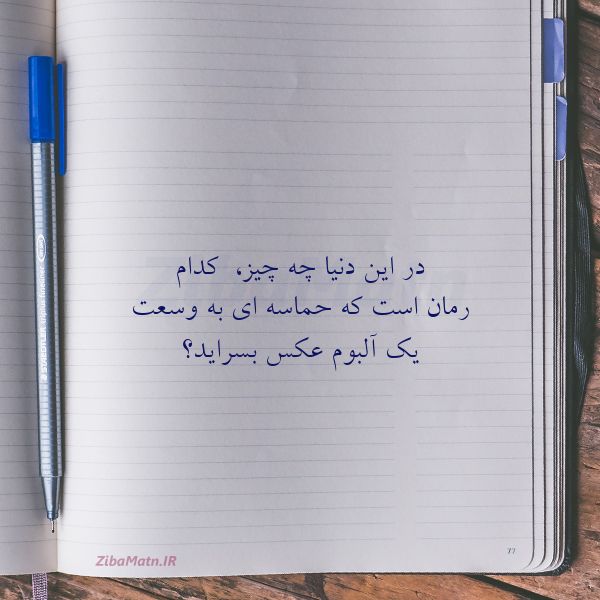 در این دنیا چه چیز، کدام
رمان است که حماسه ای به وسعت
یک آلبوم عکس بسراید؟
77
ZibaMatn.IR